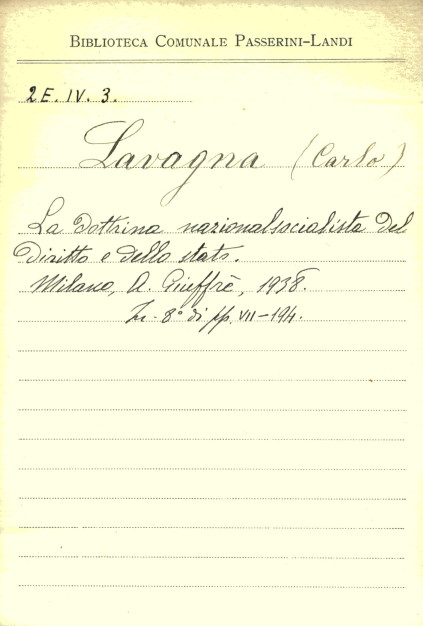 BIBLIOTECA COMUNALE PASSERINI-LANDI
2E. IV. 3.
Lavagna (Carlo)
La dottrina nazionalsocialista del
diritto e dello stato.
Milano, A. Giuffrè, 1938.
In- 8° di pp. VII-194.